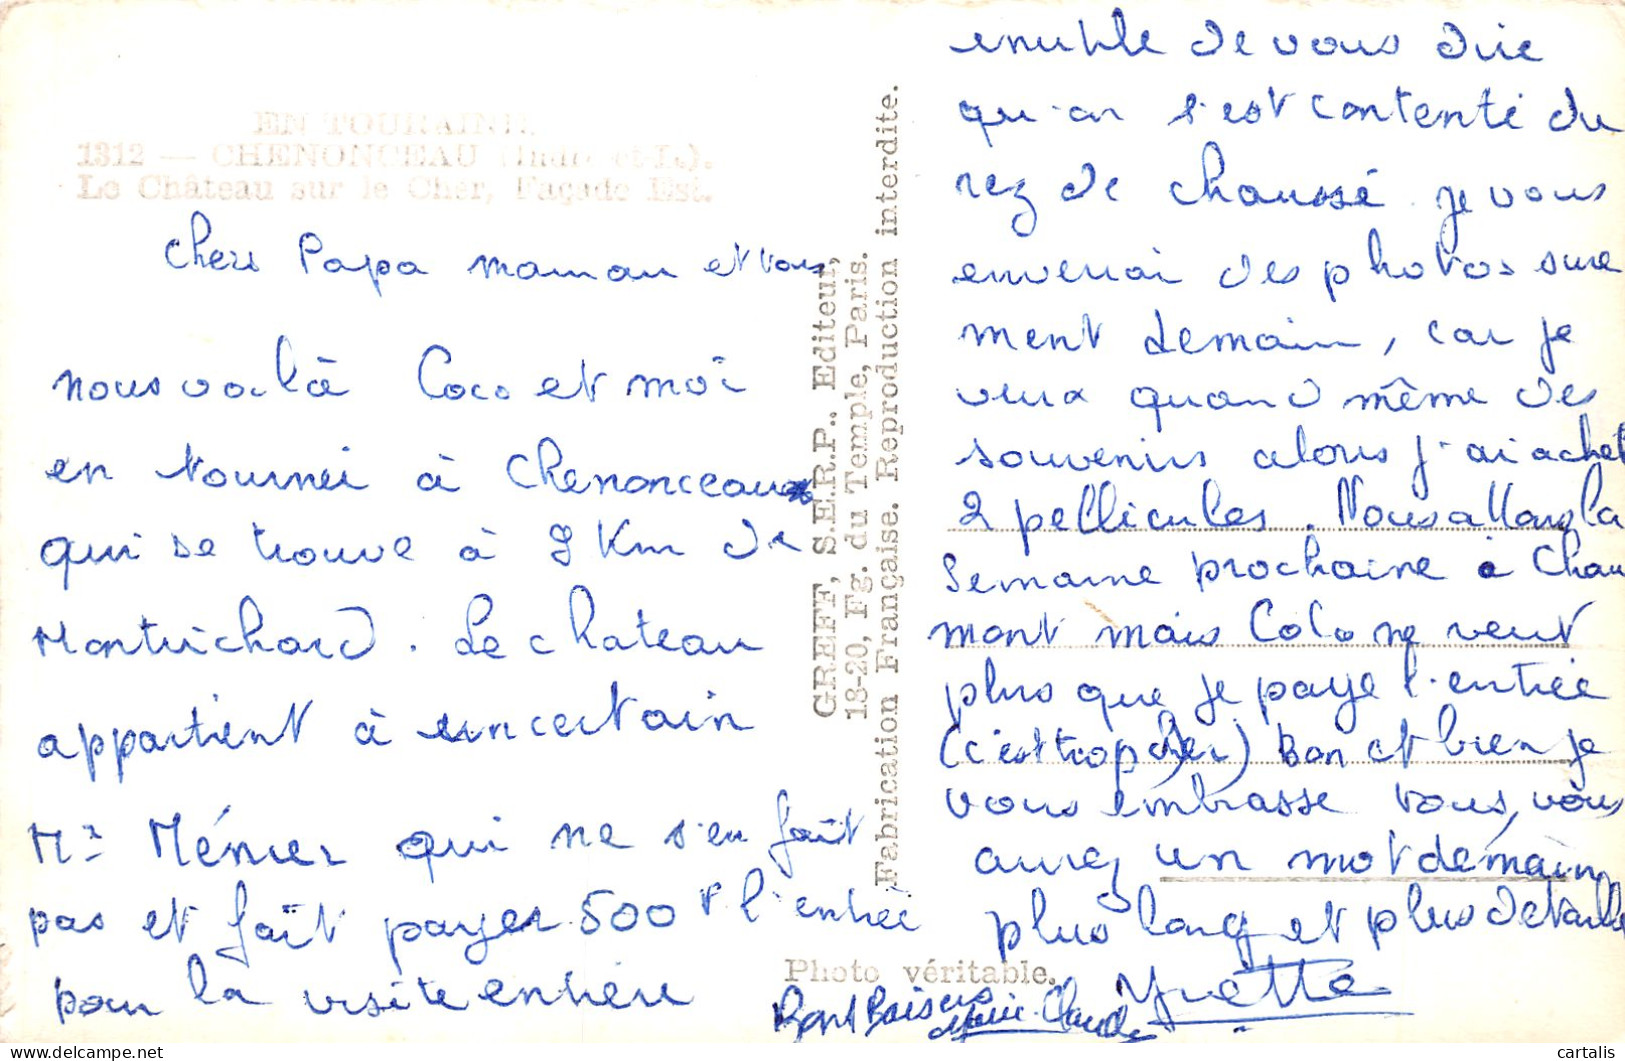 EN TOURAINE
1312 — CHENONCEAU (Indre-et-L.).
Le Château sur le Cher, Façade Est.
Chers Papa maman et vous
nous voilà Coco et moi
en tournei à Chenonceaux
qui se trouve à 9 Km de
Montrichard. Le chateau
appartient à un certain
Mr Ménier qui ne s'en fait
pas et fait payer 500 F l'entrée
pour la visite entière
GREFF, S.E.R.P., Editeur,
18-20, Fg. du Temple, Paris.
Fabrication Française. Reproduction interdite.
Photo véritable.
inutile de vous dire
qu'on s'est contenté du
rez de chaussé. je vous
enverrai des photos sure
ment demain, car je
veux quand même des
souvenirs alors j'ai achet
2 pellicules. Nous allons la
semaine prochaine à Chau
mont mais Colo ne veut
plus que je paye l'entrée
(c'est trop cher) Bon et bien je
vous embrasse tous, vous
aurez un mot demain
plus long et plus détaillé
Yvette
Bons Baisers
Marie-Claude
cartalis